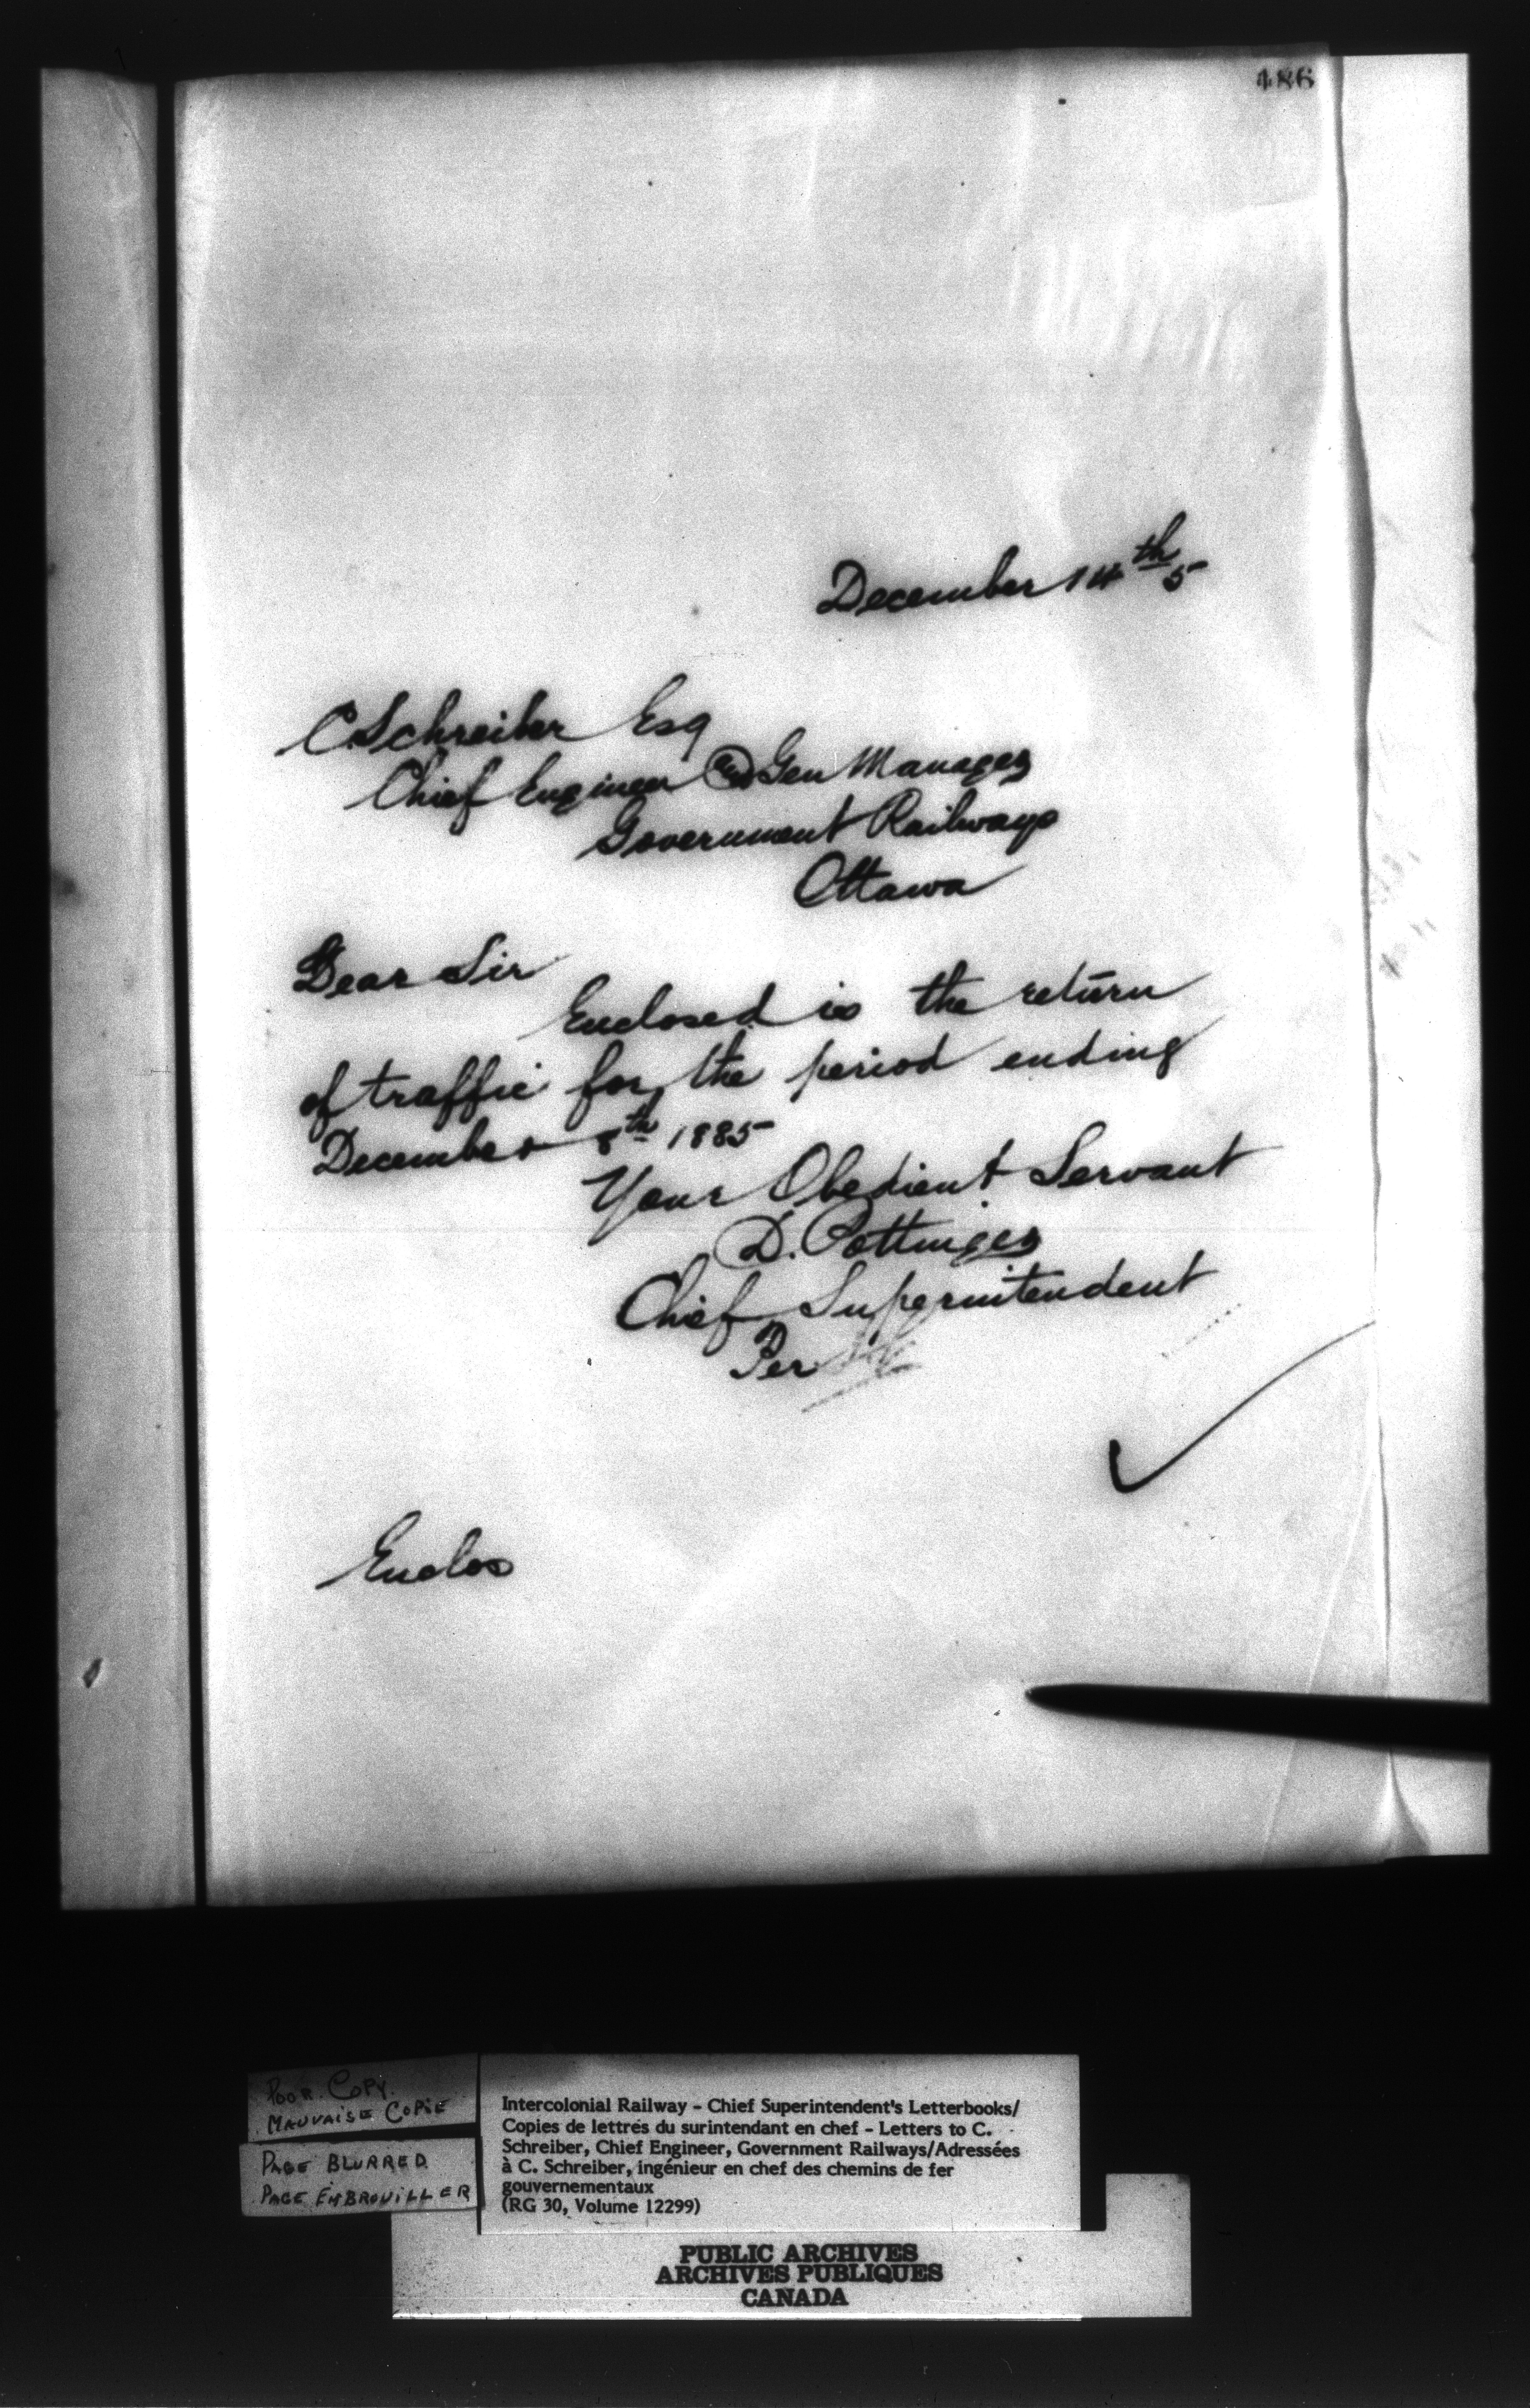 486
December 14th 5
C Schreiber Esq
Chief Engineer & Gen Manager
Government Railways
Ottawa
Dear Sir
Enclosed is the return
of traffic for the period ending
December 8th 1885
Your Obedient Servant
D. Pottinger
Chief Superintendent
Per
Enclos
POOR COPY.
MAUVAISE COPIE
PAGE BLURRED.
PAGE EMBROUILLER
Intercolonial Railway - Chief Superintendent's Letterbooks/
Copies de lettres du surintendant en chef - Letters to C.
Schreiber, Chief Engineer, Government Railways/Adressées
à C. Schreiber, ingénieur en chef des chemins de fer
gouvernementaux
(RG 30, Volume 12299)
PUBLIC ARCHIVES
ARCHIVES PUBLIQUES
CANADA